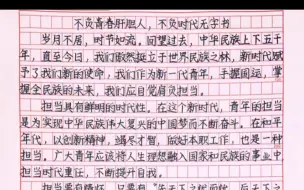 不负青春肝胆人，不负时代无字书
岁月不居，时节如流。回望过去，中华民族上下五千
年，直至今日，我们傲然挺立于世界民族之林，新时代赋
予了我们新的使命，我们作为新一代青年，手握国运，掌
全民族的未来，我们应自觉肩负担当。
担当具有鲜明的时代性。在这个新时代，青年的担当
是为实现中华民族伟大复兴的中国梦而不断奋斗。在和平
年代，以创新精神，竭尽才智，做好本职工作，也是一种
担当。广大青年应该将人生理想融入国家和民族的事业，
担当时代重任，不断提升自我。